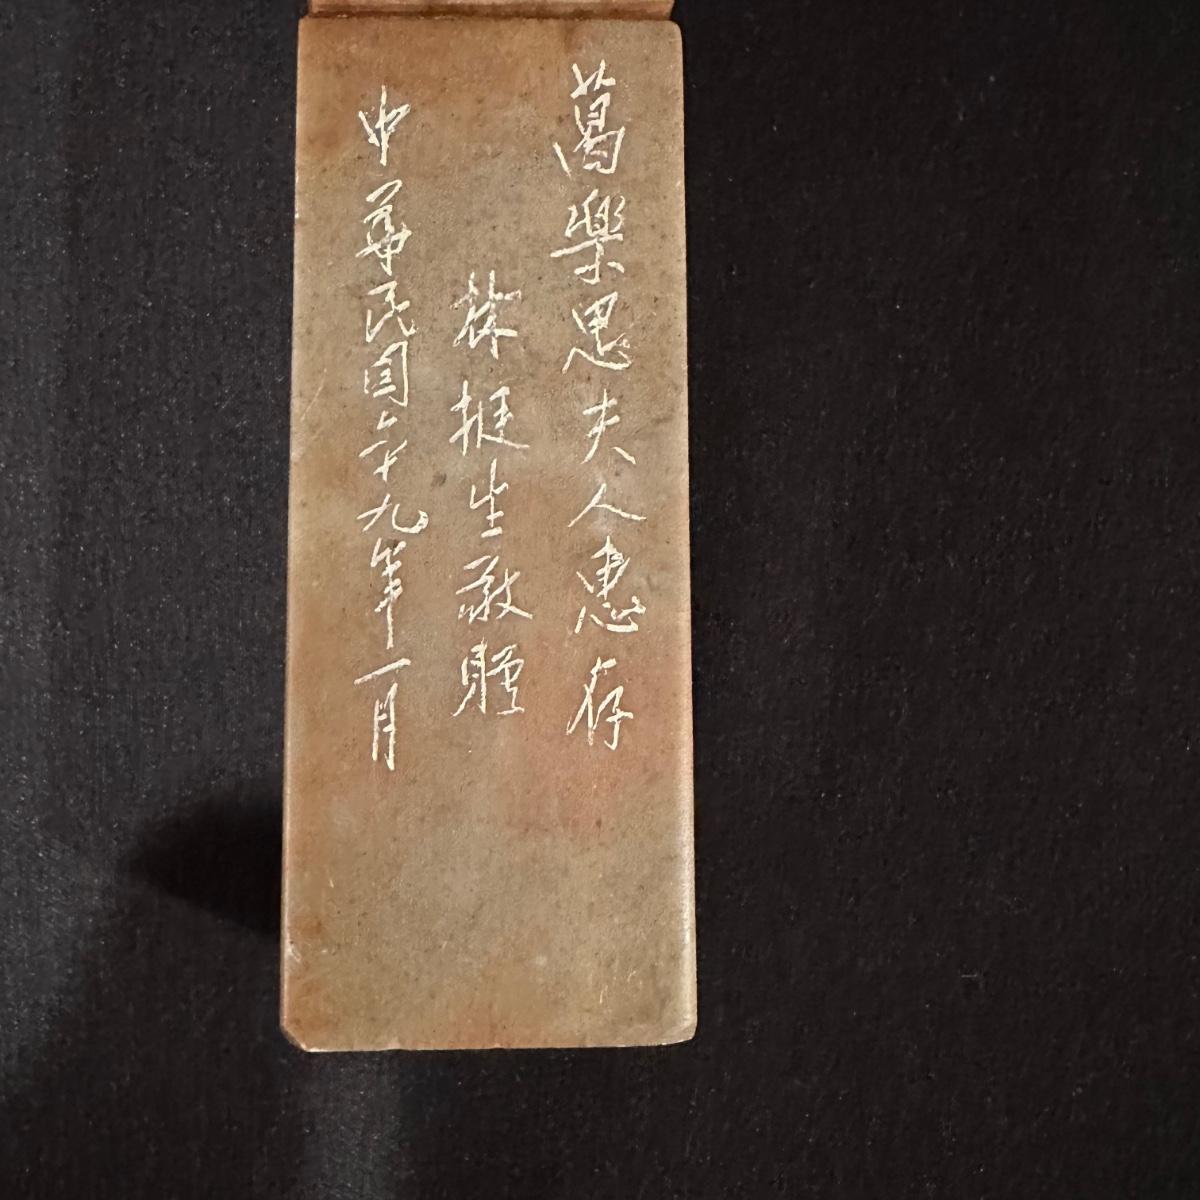 葛樂思夫人惠存
林挺生敬贈
中華民国六十九年一月